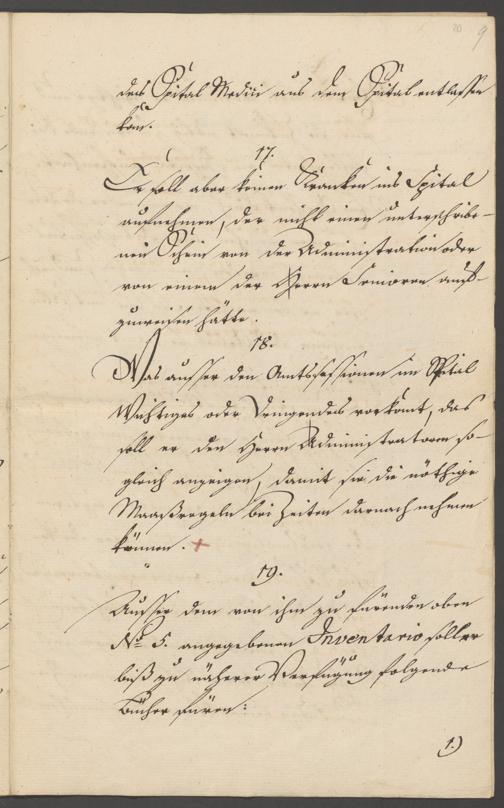 20 9
des Spital Medici aus dem Spital entlassen
kon̄.
17.
Er soll aber keinen Kranken ins Spital
aufnehmen, der nicht einen unterschribe-
nen Schein von der Administration oder
von einem der Herrn Senioren auff-
zuweisen hätte.
18.
Was ausser den Amtssessionen im Spital
Wichtiges oder Dringendes vorkom̄t, das
soll er den Herrn Administratoren so-
gleich anzeigen, damit sie die nöthige
Maaßregeln bei Zeiten darnach nehmen
können. +
19.
Ausser dem von ihm zu fürenden oben
No 5. angegebenen Inventario soll er
biß zu näherer Verfügung folgende
Bücher füren:
1.)